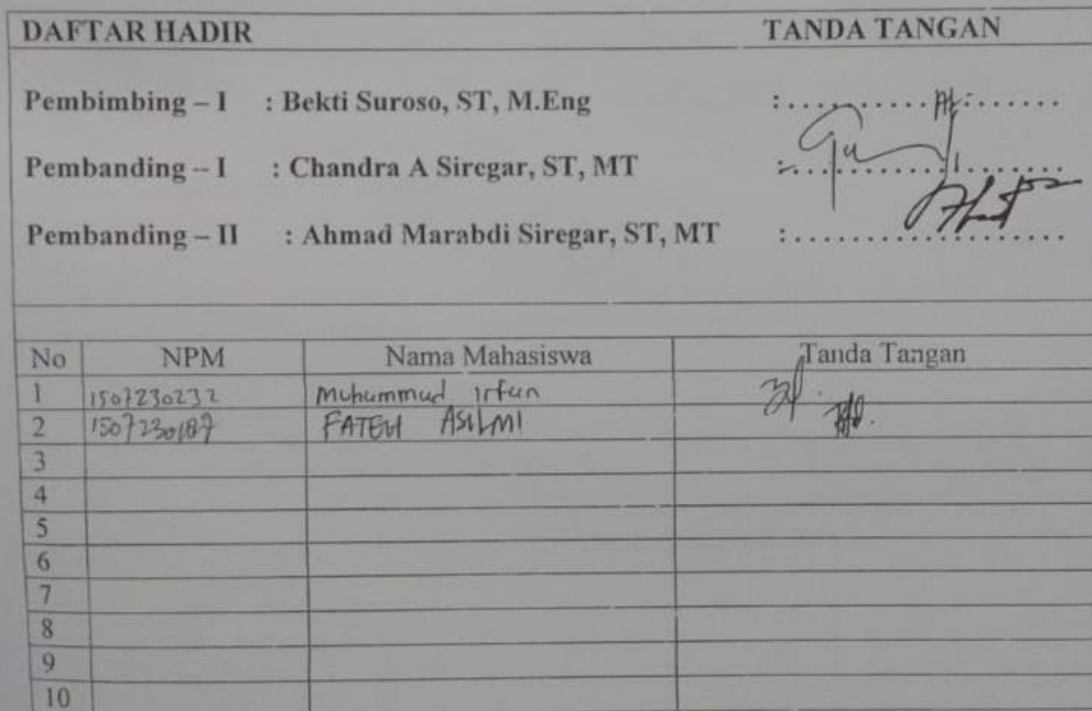 DAFTAR HADIR TANDA TANGAN
Pembimbing – I : Bekti Suroso, ST, M.Eng :....................
Pembanding – I : Chandra A Siregar, ST, MT :....................
Pembanding – II : Ahmad Marabdi Siregar, ST, MT :....................
No NPM Nama Mahasiswa Tanda Tangan
1 1507230232 Muhammad Irfan
2 1507230187 FATEH ASILMI
3
4
5
6
7
8
9
10